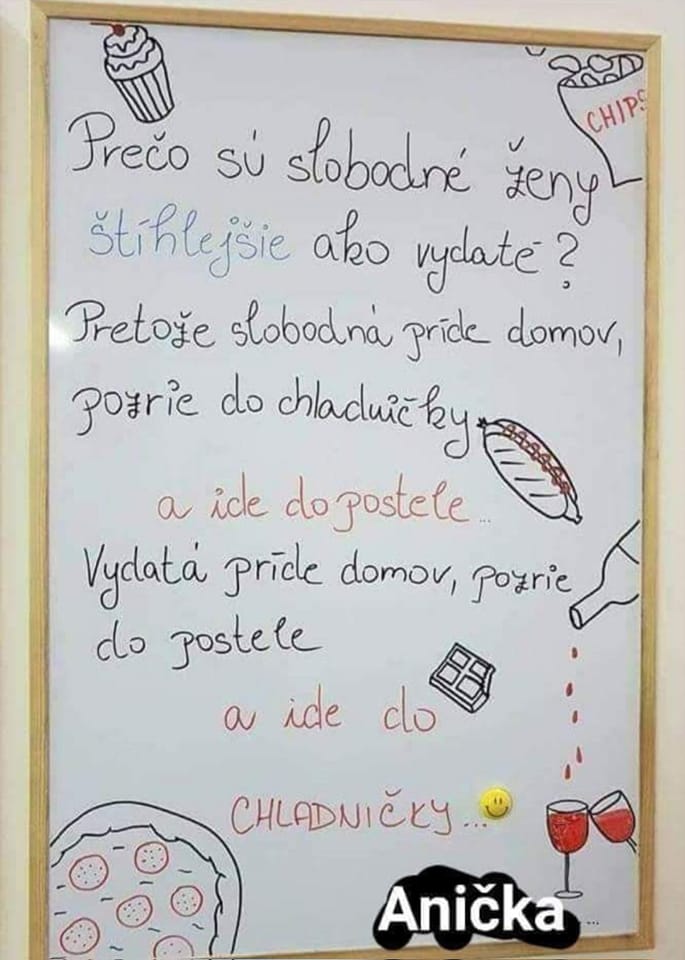 CHIPS
Prečo sú slobodné ženy
štíhlejšie ako vydaté?
Pretože slobodná príde domov,
pozrie do chladničky
a ide do postele...
Vydatá príde domov, pozrie
do postele
a ide do
CHLADNIČKY...
Anička
...